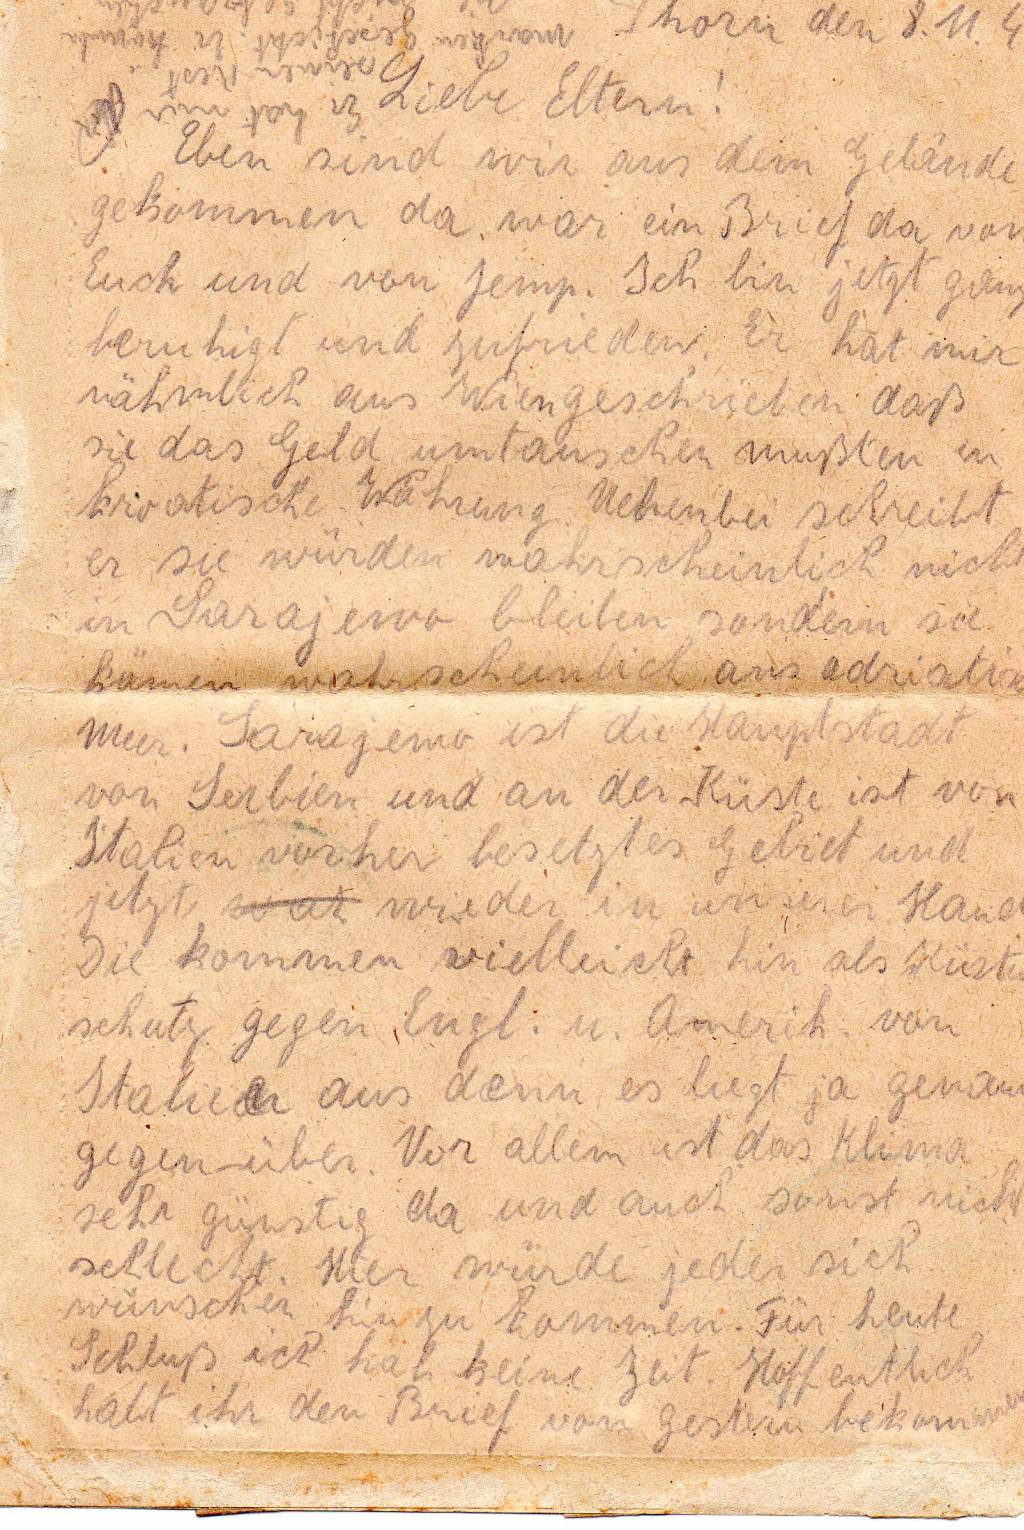 Thorn den 8.11.4
Liebe Eltern!
Er hat mir
Eben sind wir aus dem Gelände
gekommen da war ein Brief da von
Euch und von Jemp. Ich bin jetzt ganz
beruhigt und zufrieden. Er hat mir
nähmlich aus Wien geschrieben daß
sie das Geld umtauschen mußten in
kroatische Währung. Nebenbei schreibt
er sie würden wahrscheinlich nicht
in Sarajewo bleiben sondern sie
kämen wahrscheinlich ans adriatis
Meer. Sarajewo ist die Hauptstadt
von Serbien und an der Küste ist von
Italien vorher besetztes Gebiet und
jetzt wieder in unserer Hand
Die kommen vielleicht hin als Küsten
schutz gegen Engl. u. Amerik. von
Italien aus denn es liegt ja genau
gegen-über. Vor allem ist das Klima
sehr günstig da und auch sonst nicht
schlecht. Hier würde jeder sich
wünschen hin zu kommen. Für heute
Schluß ich hab keine Zeit. Hoffentlich
habt ihr den Brief von gestern bekommen